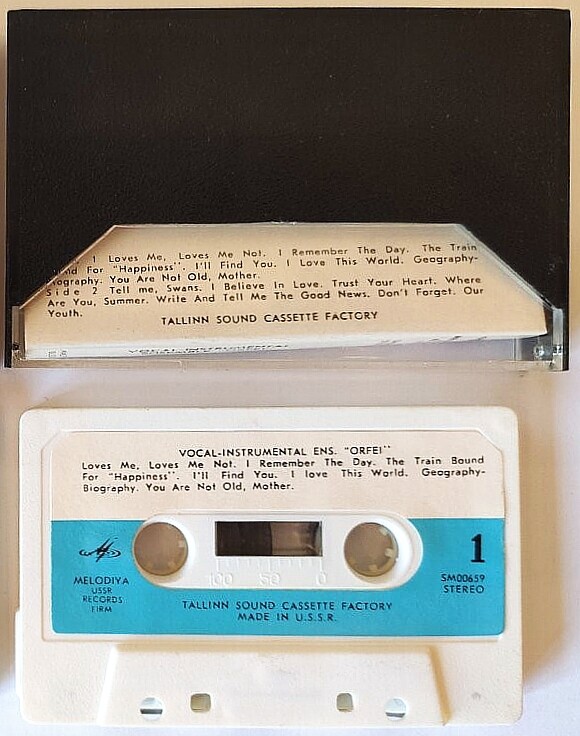 1 Loves Me, Loves Me Not. I Remember The Day. The Train
For "Happiness". I'll Find You. I Love This World. Geography-
You Are Not Old, Mother.
Side 2 Tell me, Swans. I Believe In Love. Trust Your Heart. Where
Are You, Summer. Write And Tell Me The Good News. Don't Forget. Our
Youth.
TALLINN SOUND CASSETTE FACTORY
VOCAL-INSTRUMENTAL
VOCAL-INSTRUMENTAL ENS. "ORFEI"
Loves Me, Loves Me Not. I Remember The Day. The Train Bound
For "Happiness". I'll Find You. I love This World. Geography-
Biography. You Are Not Old, Mother.
1
MELODIYA
USSR
RECORDS
FIRM
100 50 0
SM00659
STEREO
TALLINN SOUND CASSETTE FACTORY
MADE IN U.S.S.R.